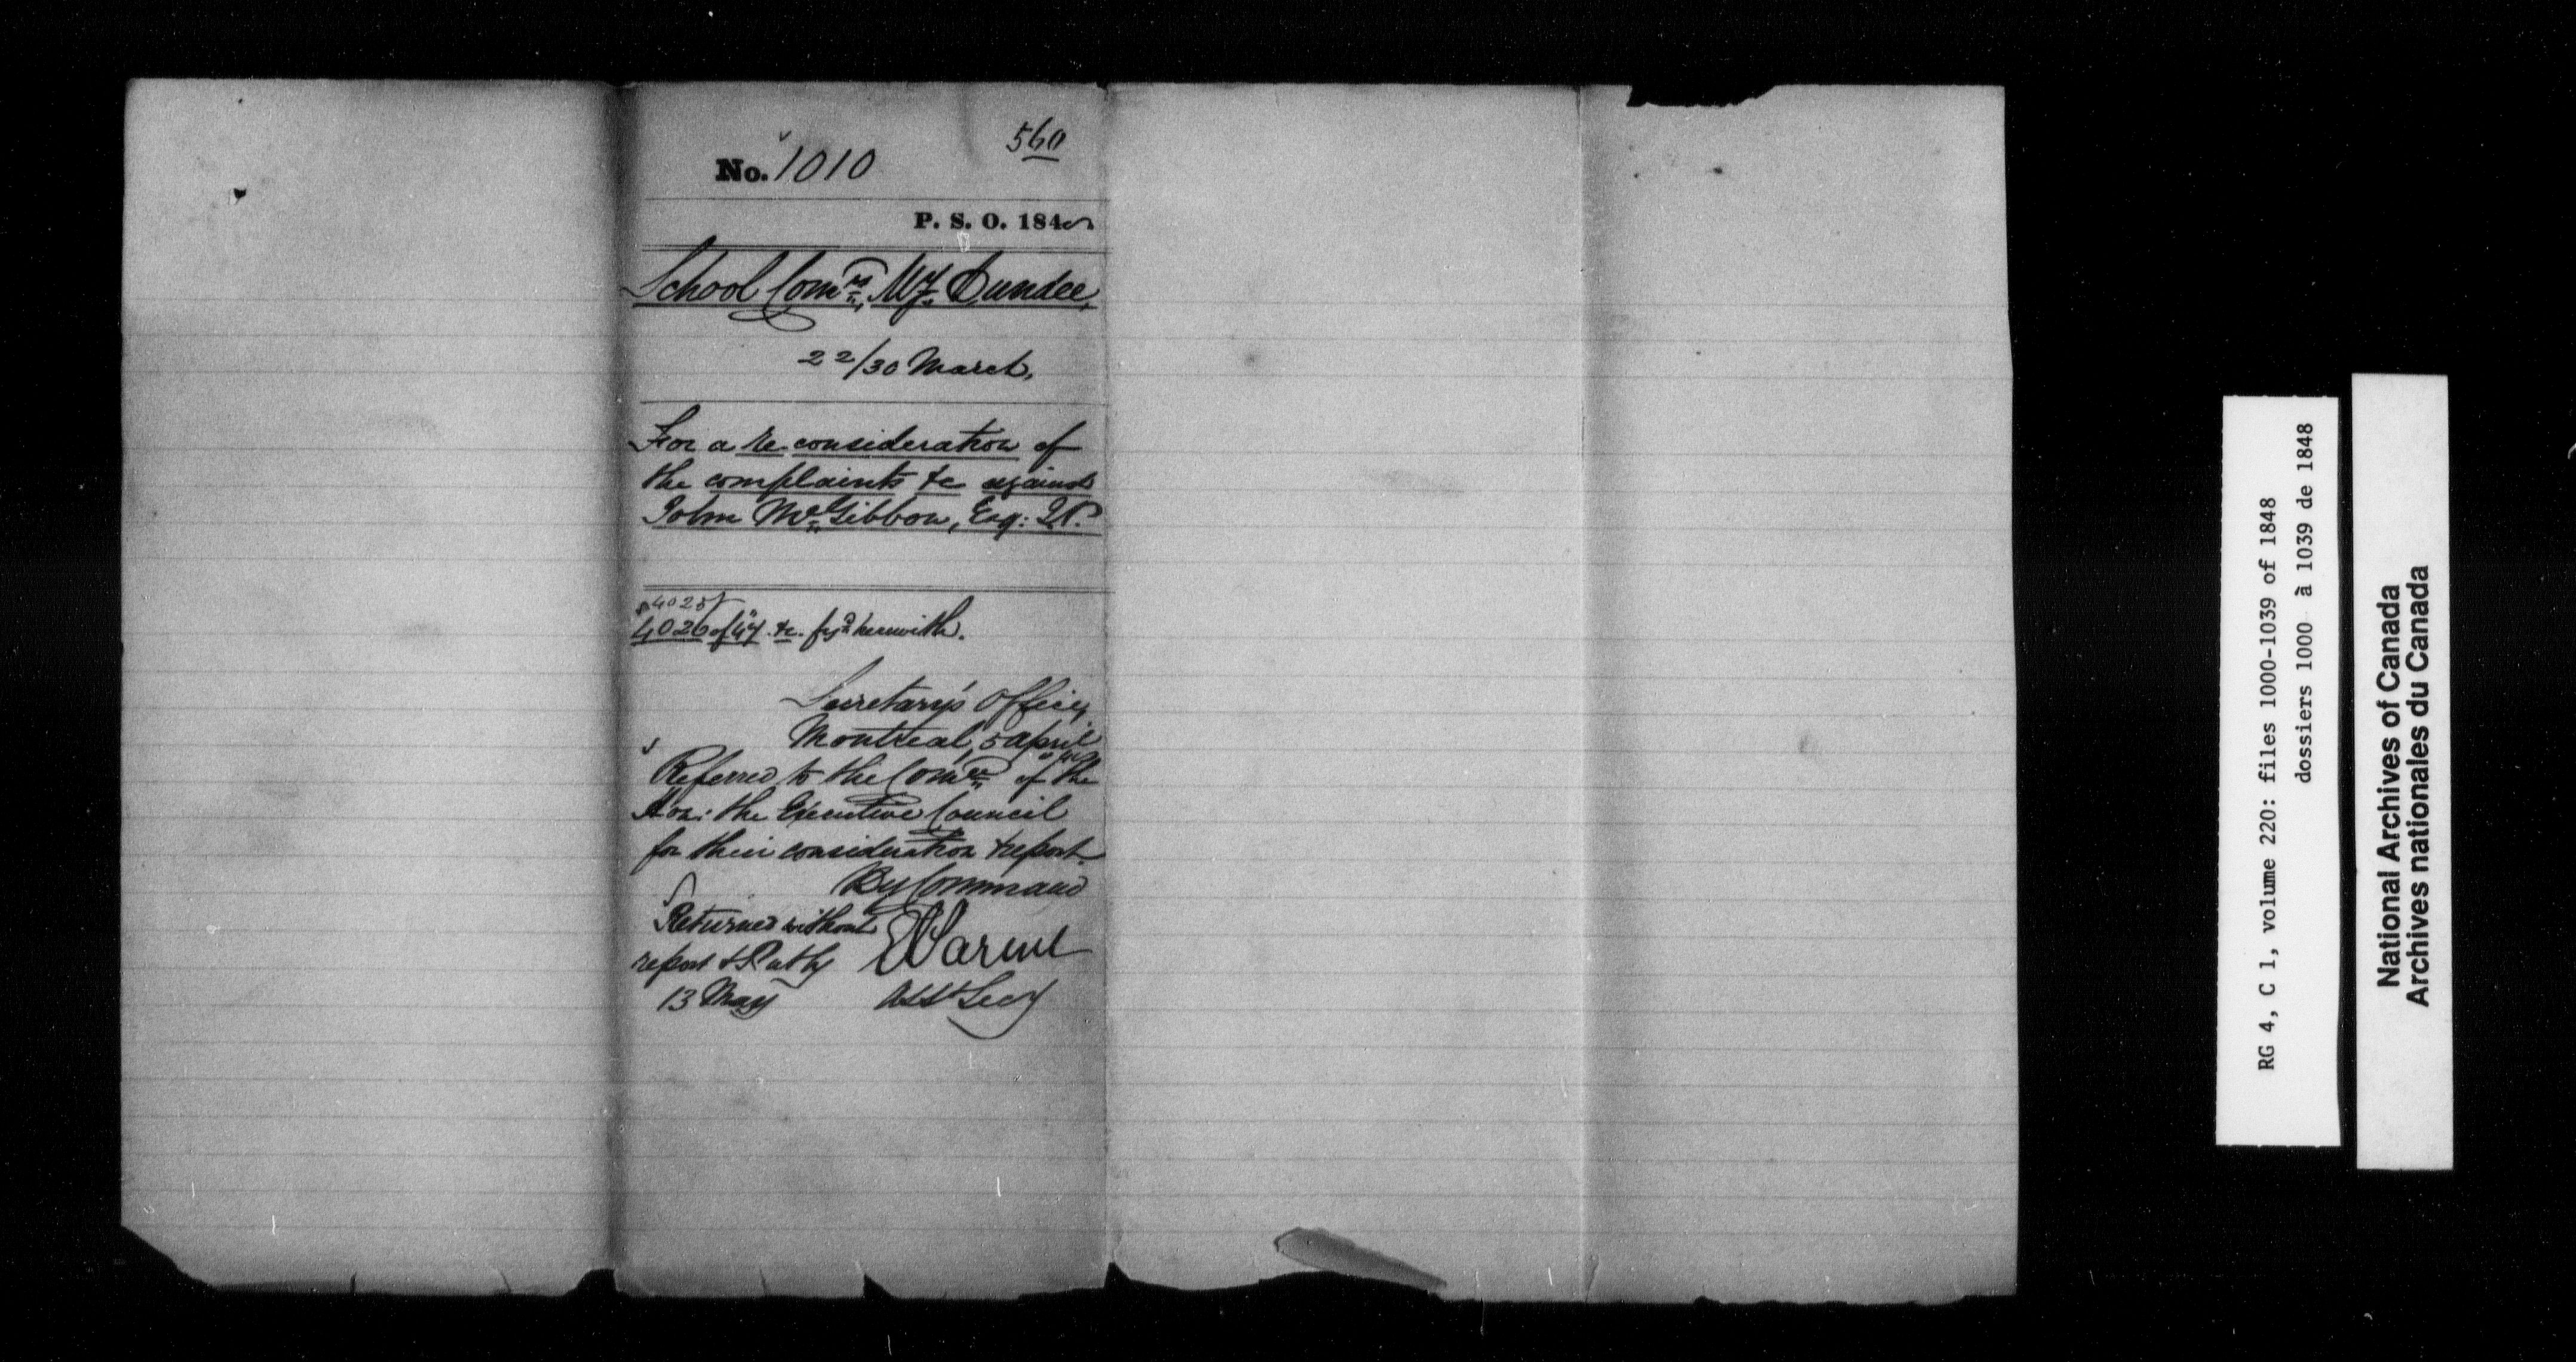 560
No. 1010
P. S. O. 184
School Comrs, My. Dundee,
22/30 March.
For a re-consideration of
the complaints &c against
John McGibbon, Esq: J.P.
4025
4026 of 47 &c. herewith.
Secretary's Office,
Montreal, 5 April
Referred to the Comee of the
Hon: the Executive Council
for their consideration & report.
By Command
E Parent
Asst Secy
Returned without
report &
13 May
RG 4, C 1, volume 220: files 1000-1039 of 1848
dossiers 1000 à 1039 de 1848
National Archives of Canada
Archives nationales du Canada